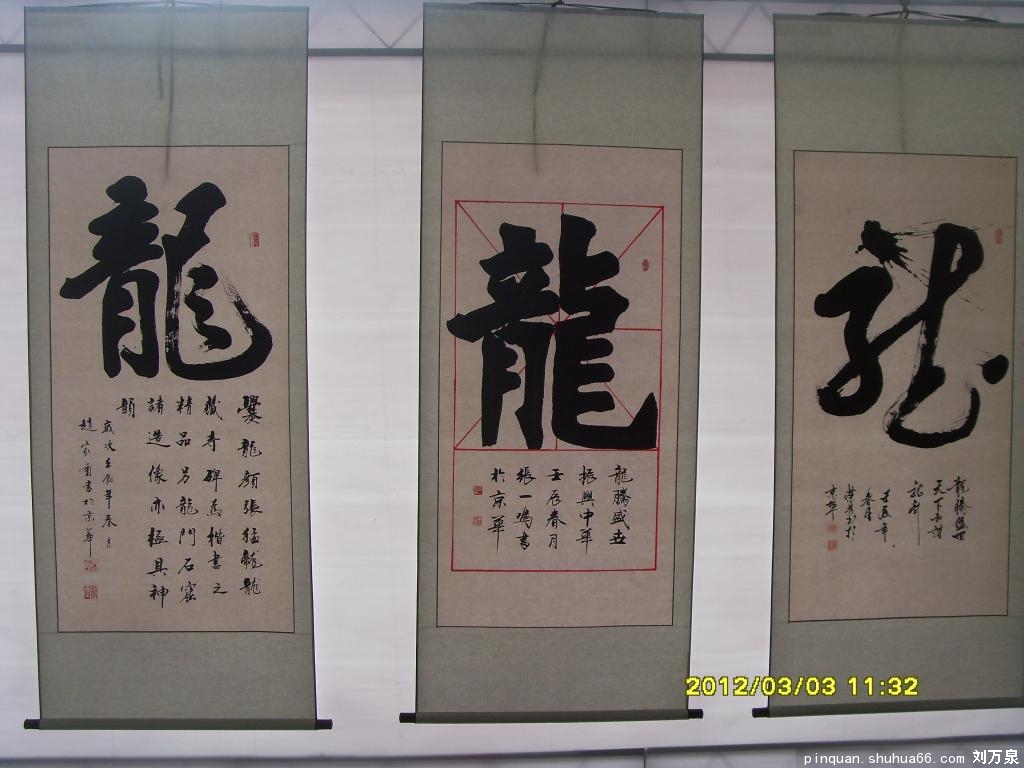 龍
爨龍顏張猛龍龍
藏寺碑為楷書之
精品另龍門石窟
諸造像亦極具神
韻
歲次壬辰年春月
書於京華
龍
龍騰盛世
振興中華
壬辰春月
張一鳴書
於京華
龍
龍騰盛世
天下和諧
壬辰年
春月
京華
2012/03/03 11:32
pinquan.shuhua66.com 刘万泉